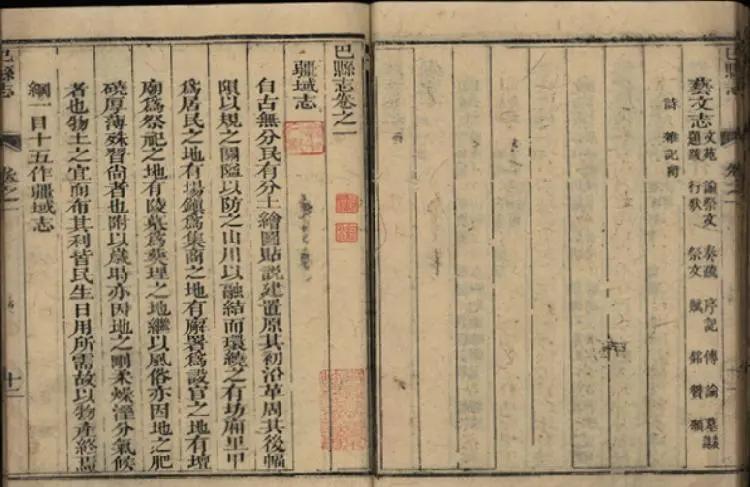 巴縣志
藝文志
文苑 諭祭文 奏疏 序記 傳 論 墓誌
題 行狀 祭文 賦 銘 贊 頌
詩 雜記附
巴縣志卷之一
疆域志
自古無分民有分土繪圖貼説建置原其初沿革周其後幅
隕以規之關隘以防之山川以融結而環繞之有坊廂里甲
爲居民之地有場鎮爲集商之地有廨署爲設官之地有壇
廟爲祭祀之地有陵墓爲葬理之地繼以風俗亦因地之肥
磽厚薄殊習尚者也附以歲時亦因地之剛柔燥溼分氣候
者也物土之宜而布其利皆民生日用所需故以物產終焉
綱一目十五作疆域志
巴縣志 卷之一